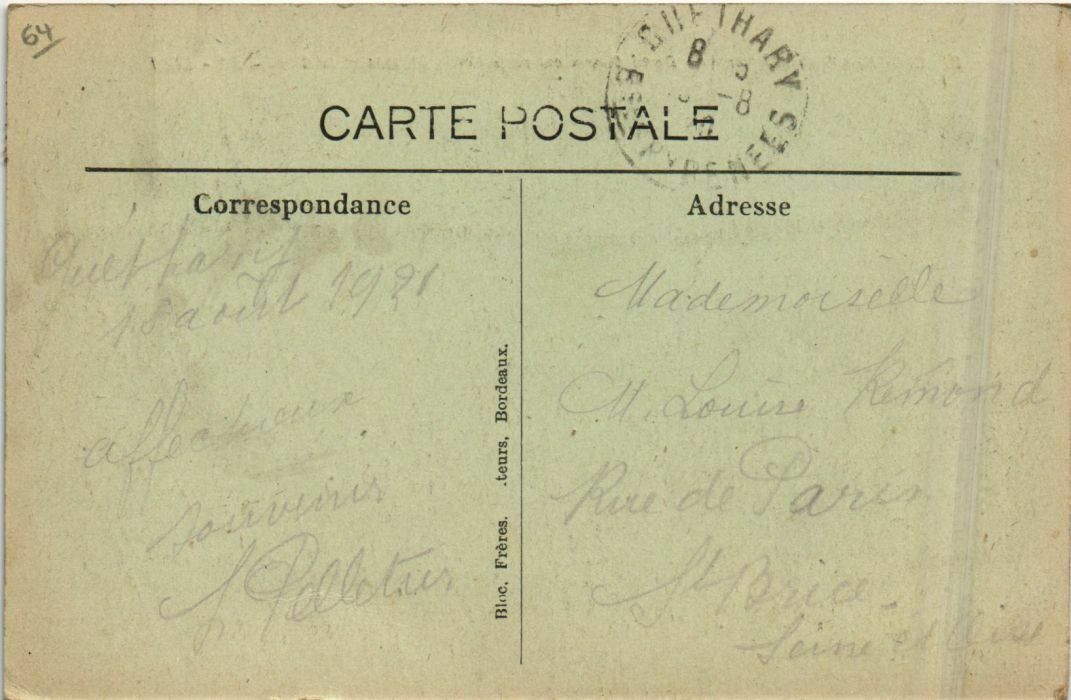 64
GUÉTHARY
8
-8
BSES PYRENEES
CARTE POSTALE
Correspondance
Adresse
Guéthary
18 août 1921
affectueux
souvenirs
Pelletier
Bloc. Frères. .teurs, Bordeaux.
Mademoiselle
M. Louise Rémond
Rue de Paris
St Brice
Seine et Oise